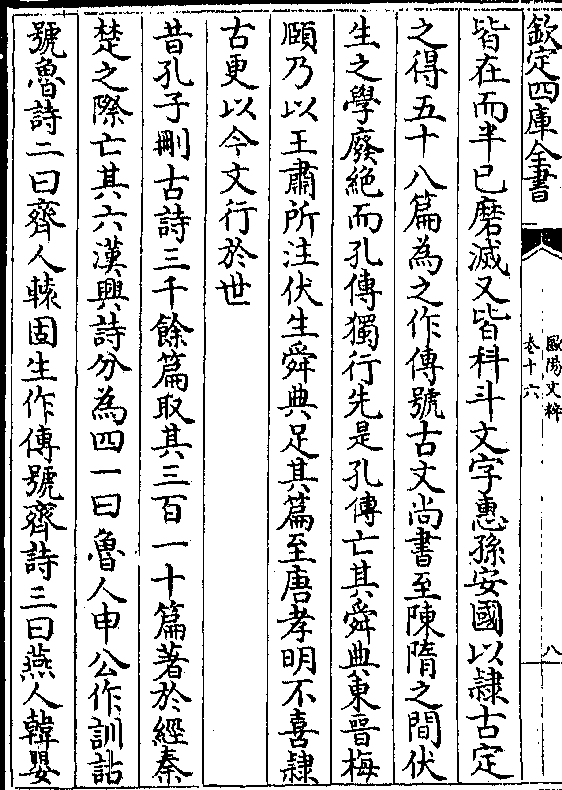 欽定四庫全書
歐陽文粹
卷十六
八
皆在而半已磨滅又皆科斗文字惠孫安國以隸古定
之得五十八篇為之作傳號古文尚書至陳隋之間伏
生之學廢絶而孔傳獨行先是孔傳亡其舜典東晉梅
頤乃以王肅所注伏生舜典足其篇至唐孝明不喜隸
古更以今文行於世
昔孔子刪古詩三千餘篇取其三百一十篇著於經秦
楚之際亡其六漢興詩分為四一曰魯人申公作訓詁
號魯詩二曰齊人轅固生作傳號齊詩三曰燕人韓嬰